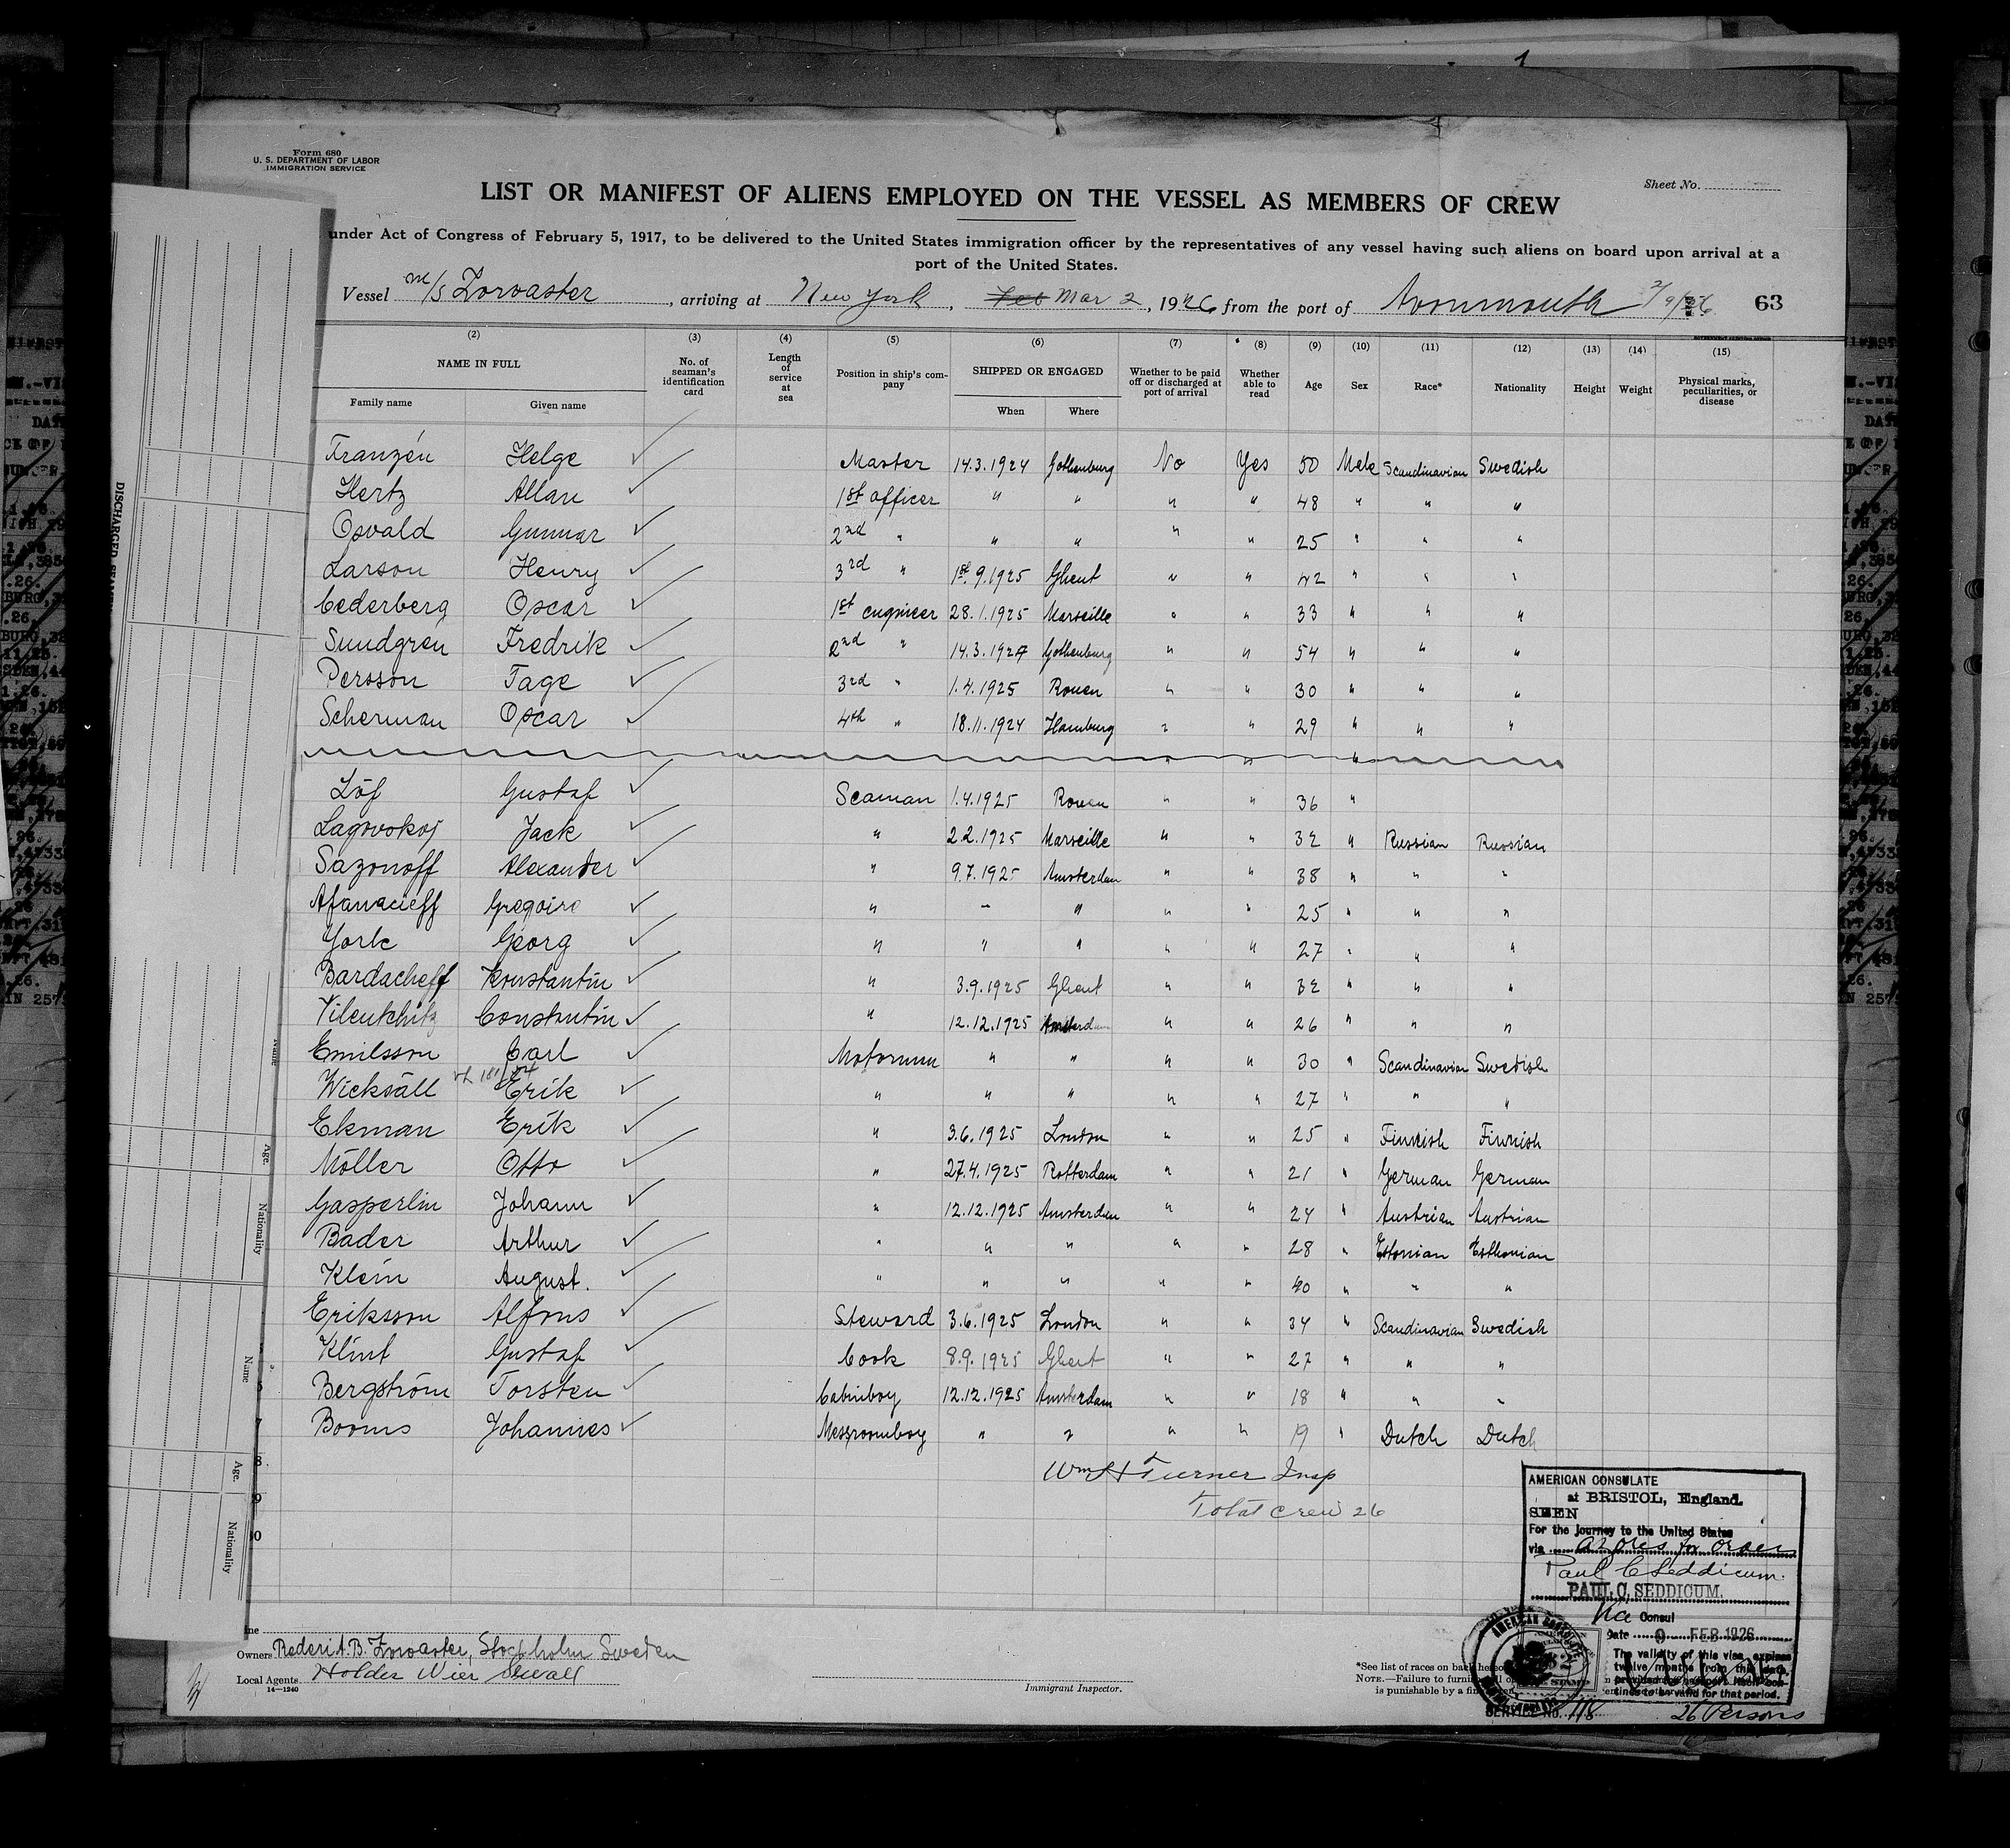 Form 680
U. S. DEPARTMENT OF LABOR
IMMIGRATION SERVICE
Sheet No.
LIST OR MANIFEST OF ALIENS EMPLOYED ON THE VESSEL AS MEMBERS OF CREW
under Act of Congress of February 5, 1917, to be delivered to the United States immigration officer by the representatives of any vessel having such aliens on board upon arrival at a
port of the United States.
Vessel m/s Zoroaster, arriving at New York, Feb Mar 2, 1926 from the port of Avonmouth 2/9/26 63
(2) (3) (4) (5) (6) (7) (8) (9) (10) (11) (12) (13) (14) (15)
NAME IN FULL No. of seaman's identification card Length of service at sea Position in ship's company SHIPPED OR ENGAGED Whether to be paid off or discharged at port of arrival Whether able to read Age Sex Race* Nationality Height Weight Physical marks, peculiarities, or disease
Family name Given name When Where
Franzén Helge Master 14.3.1924 Gothenburg No Yes 50 Male Scandinavian Swedish
Hertz Allan 1st officer " " " " 48 " " "
Osvald Gunnar 2nd " " " " " 25 " " "
Larson Henry 3rd " 1st.9.1925 Ghent " " 42 " " "
Cederberg Oscar 1st engineer 28.1.1925 Marseille " " 33 " " "
Sundgren Fredrik 2nd " 14.3.1924 Gothenburg " " 54 " " "
Persson Tage 3rd " 1.4.1925 Rouen " " 30 " " "
Scherman Oscar 4th " 18.11.1924 Hamburg " " 29 " " "
" " "
Löf Gustaf Seaman 1.4.1925 Rouen " " 36 "
Lagovokoj Jack " 22.1925 Marseille " " 32 " Russian Russian
Sazonoff Alexander " 9.7.1925 Amsterdam " " 38 " " "
Afanacieff Gregoire " " " " " 25 " " "
York Georg " " " " " 27 " " "
Bardacheff Konstantin " 3.9.1925 Ghent " " 32 " " "
Vilentchitz Constantin " 12.12.1925 Amsterdam " " 26 " " "
Emilsson Carl Motorman " " " " 30 " Scandinavian Swedish
Wicksäll Erik " " " " " 27 " " "
Ekman Erik " 3.6.1925 London " " 25 " Finnish Finnish
Möller Otto " 27.4.1925 Rotterdam " " 21 " German German
Gasperlin Johann " 12.12.1925 Amsterdam " " 24 " Austrian Austrian
Bader Arthur " " " " " 28 " Estonian Esthonian
Klein August. " " " " " 40 " " "
Eriksson Alfons Steward 3.6.1925 London " " 34 " Scandinavian Swedish
Klint Gustaf Cook 8.9.1925 Ghent " " 27 " " "
Bergström Torsten Cabinboy 12.12.1925 Amsterdam " " 18 " " "
Booms Johannes Messroomboy " " " " 19 " Dutch Dutch
Wm H Turner Insp
Total crew 26
AMERICAN CONSULATE
at BRISTOL, England.
SEEN
For the journey to the United States
via Azores for order
Paul C Seddicum.
PAUL C. SEDDICUM.
Consul
Date 9 FEB 1926
The validity of this visa expires
twelve months from this date,
provided the passport itself con-
tinues to be valid for that period.
SERVICE No. 118
26 Persons
Owners Rederi A.B. Zoroaster, Stockholm Sweden
Local Agents
14—1240
Immigrant Inspector.
*See list of races on back hereof
NOTE.—Failure to furnish
is punishable by a fine
DISCHARGED SEAMEN
Name
Age.
Nationality
Name
Age.
Nationality